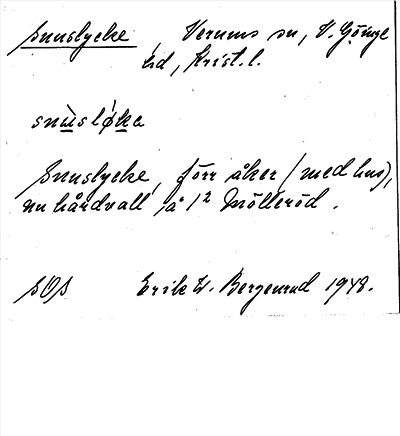 Snuslycke, Verums sn, V. Göinge
hd, Krist. l.
snùsløka
Snuslycke, förr åker (med hus),
nu hårdvall, å 1² Mölleröd.
SOS Erik W. Bergenrud 1948.